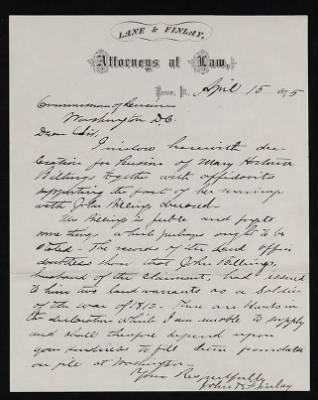 LANE & FINLAY,
Attorneys at Law,
April 15 1875
Commissioner of Pensions
Washington D.C.
Dear Sir,
I inclose herewith dec-
laration for Pension of Mary
Billings together with affidavits
supporting the fact of her marriage
with John Billings deceased-
Mrs Billings is feeble and forgets
some things which perhaps ought to be
stated - The records of the Land Office
doubtless show that John Billings,
husband of the Claimant, had issued
to him two land warrants as a Soldier
of the war of 1812 - There are blanks in
the declaration which I am unable to supply
and shall therefore depend upon
your kindness to fill them from data
on file at Washington-
Yours Respectfully
John B. Finlay